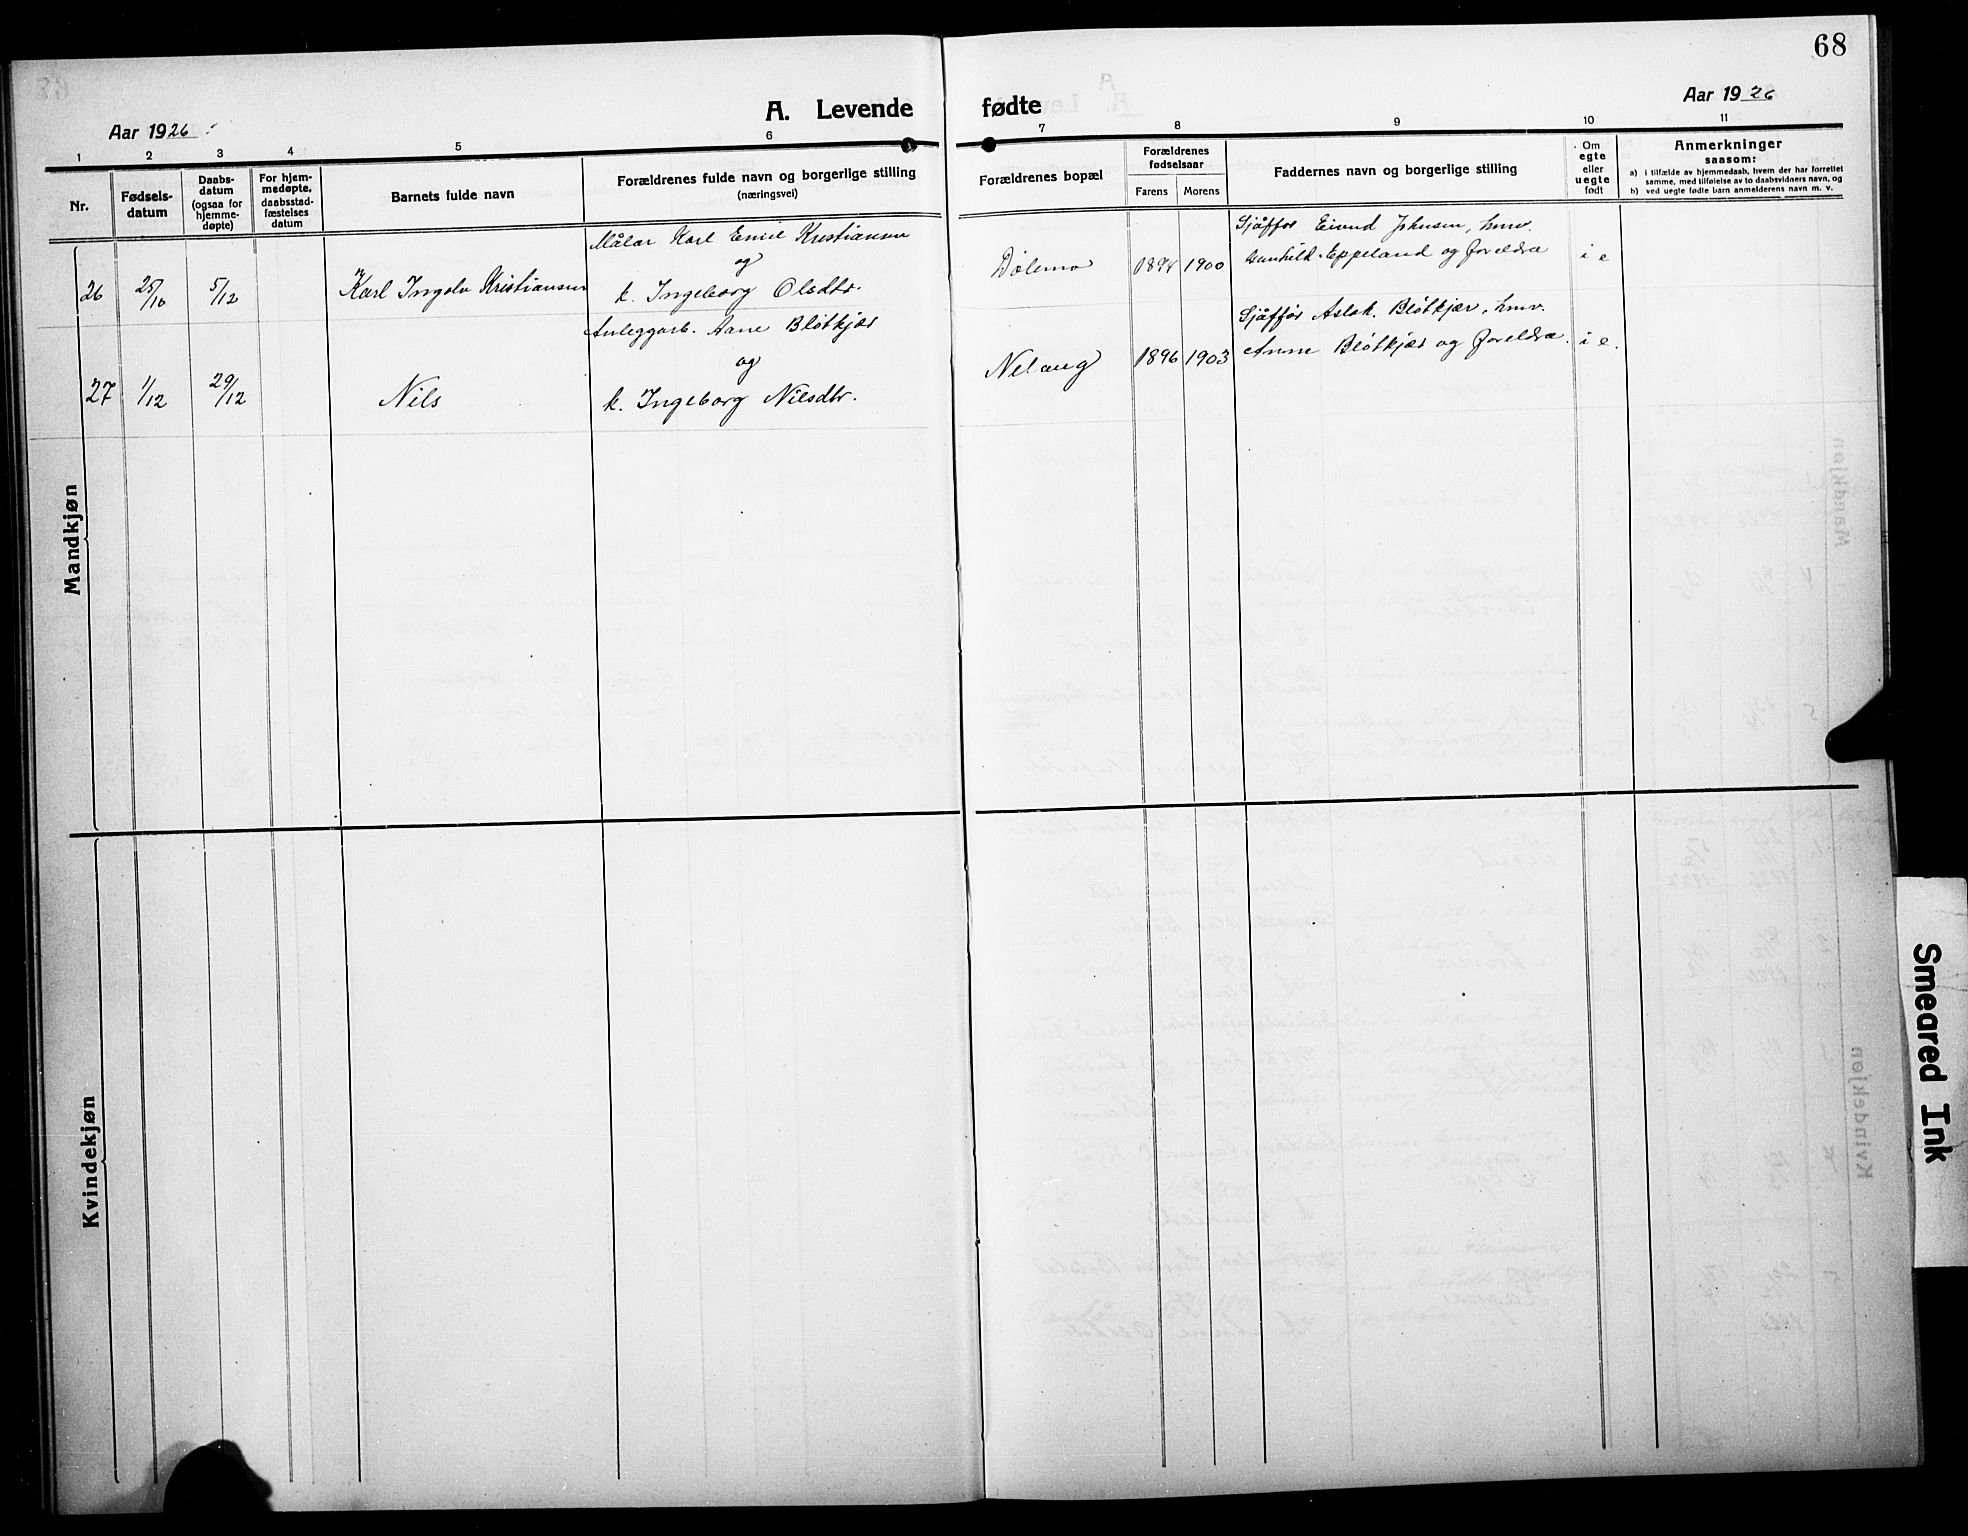 68
Aar 1926
A. Levende
fødte
Aar 1926
1 2 3 4 5 6 7 8 9 10 11
Nr.
Fødsels-
datum
Daabs-
datum
(ogsaa for
hjemme-
døpte)
For hjem-
medøpte,
daabsstad-
fæstelses
datum
Barnets fulde navn
Forældrenes fulde navn og borgerlige stilling
(næringsvei)
Forældrenes bopæl
Forældrenes
fødselsaar
Farens Morens
Faddernes navn og borgerlige stilling
Om
egte
eller
uegte
født
Anmerkninger
saasom:
a) i tilfælde av hjemmedaab, hvem der har forrettet
samme, med tilføielse av to daabsvidners navn, og
b) ved uegte fødte barn anmelderens navn m. v.
Mandkjøn
26 25/10 5/12 Karl Ingolv Kristiansen
Målar Karl Emil Kristiansen
og
k. Ingeborg Olsdtr.
Dölemo 1894 1900
Sjåffør Eivind Johnsen, hmv.
Gunhild Eppeland og foreldra
i e
27 1/12 29/12 Nils
Anleggarb. Aane Bløtkjær
og
k. Ingeborg Nilsdtr.
Nelaug 1896 1903
Sjåffør Aslak Bløtkjær, hmv.
Anne Bløtkjær og foreldra.
i e.
Kvindekjøn
Smeared Ink